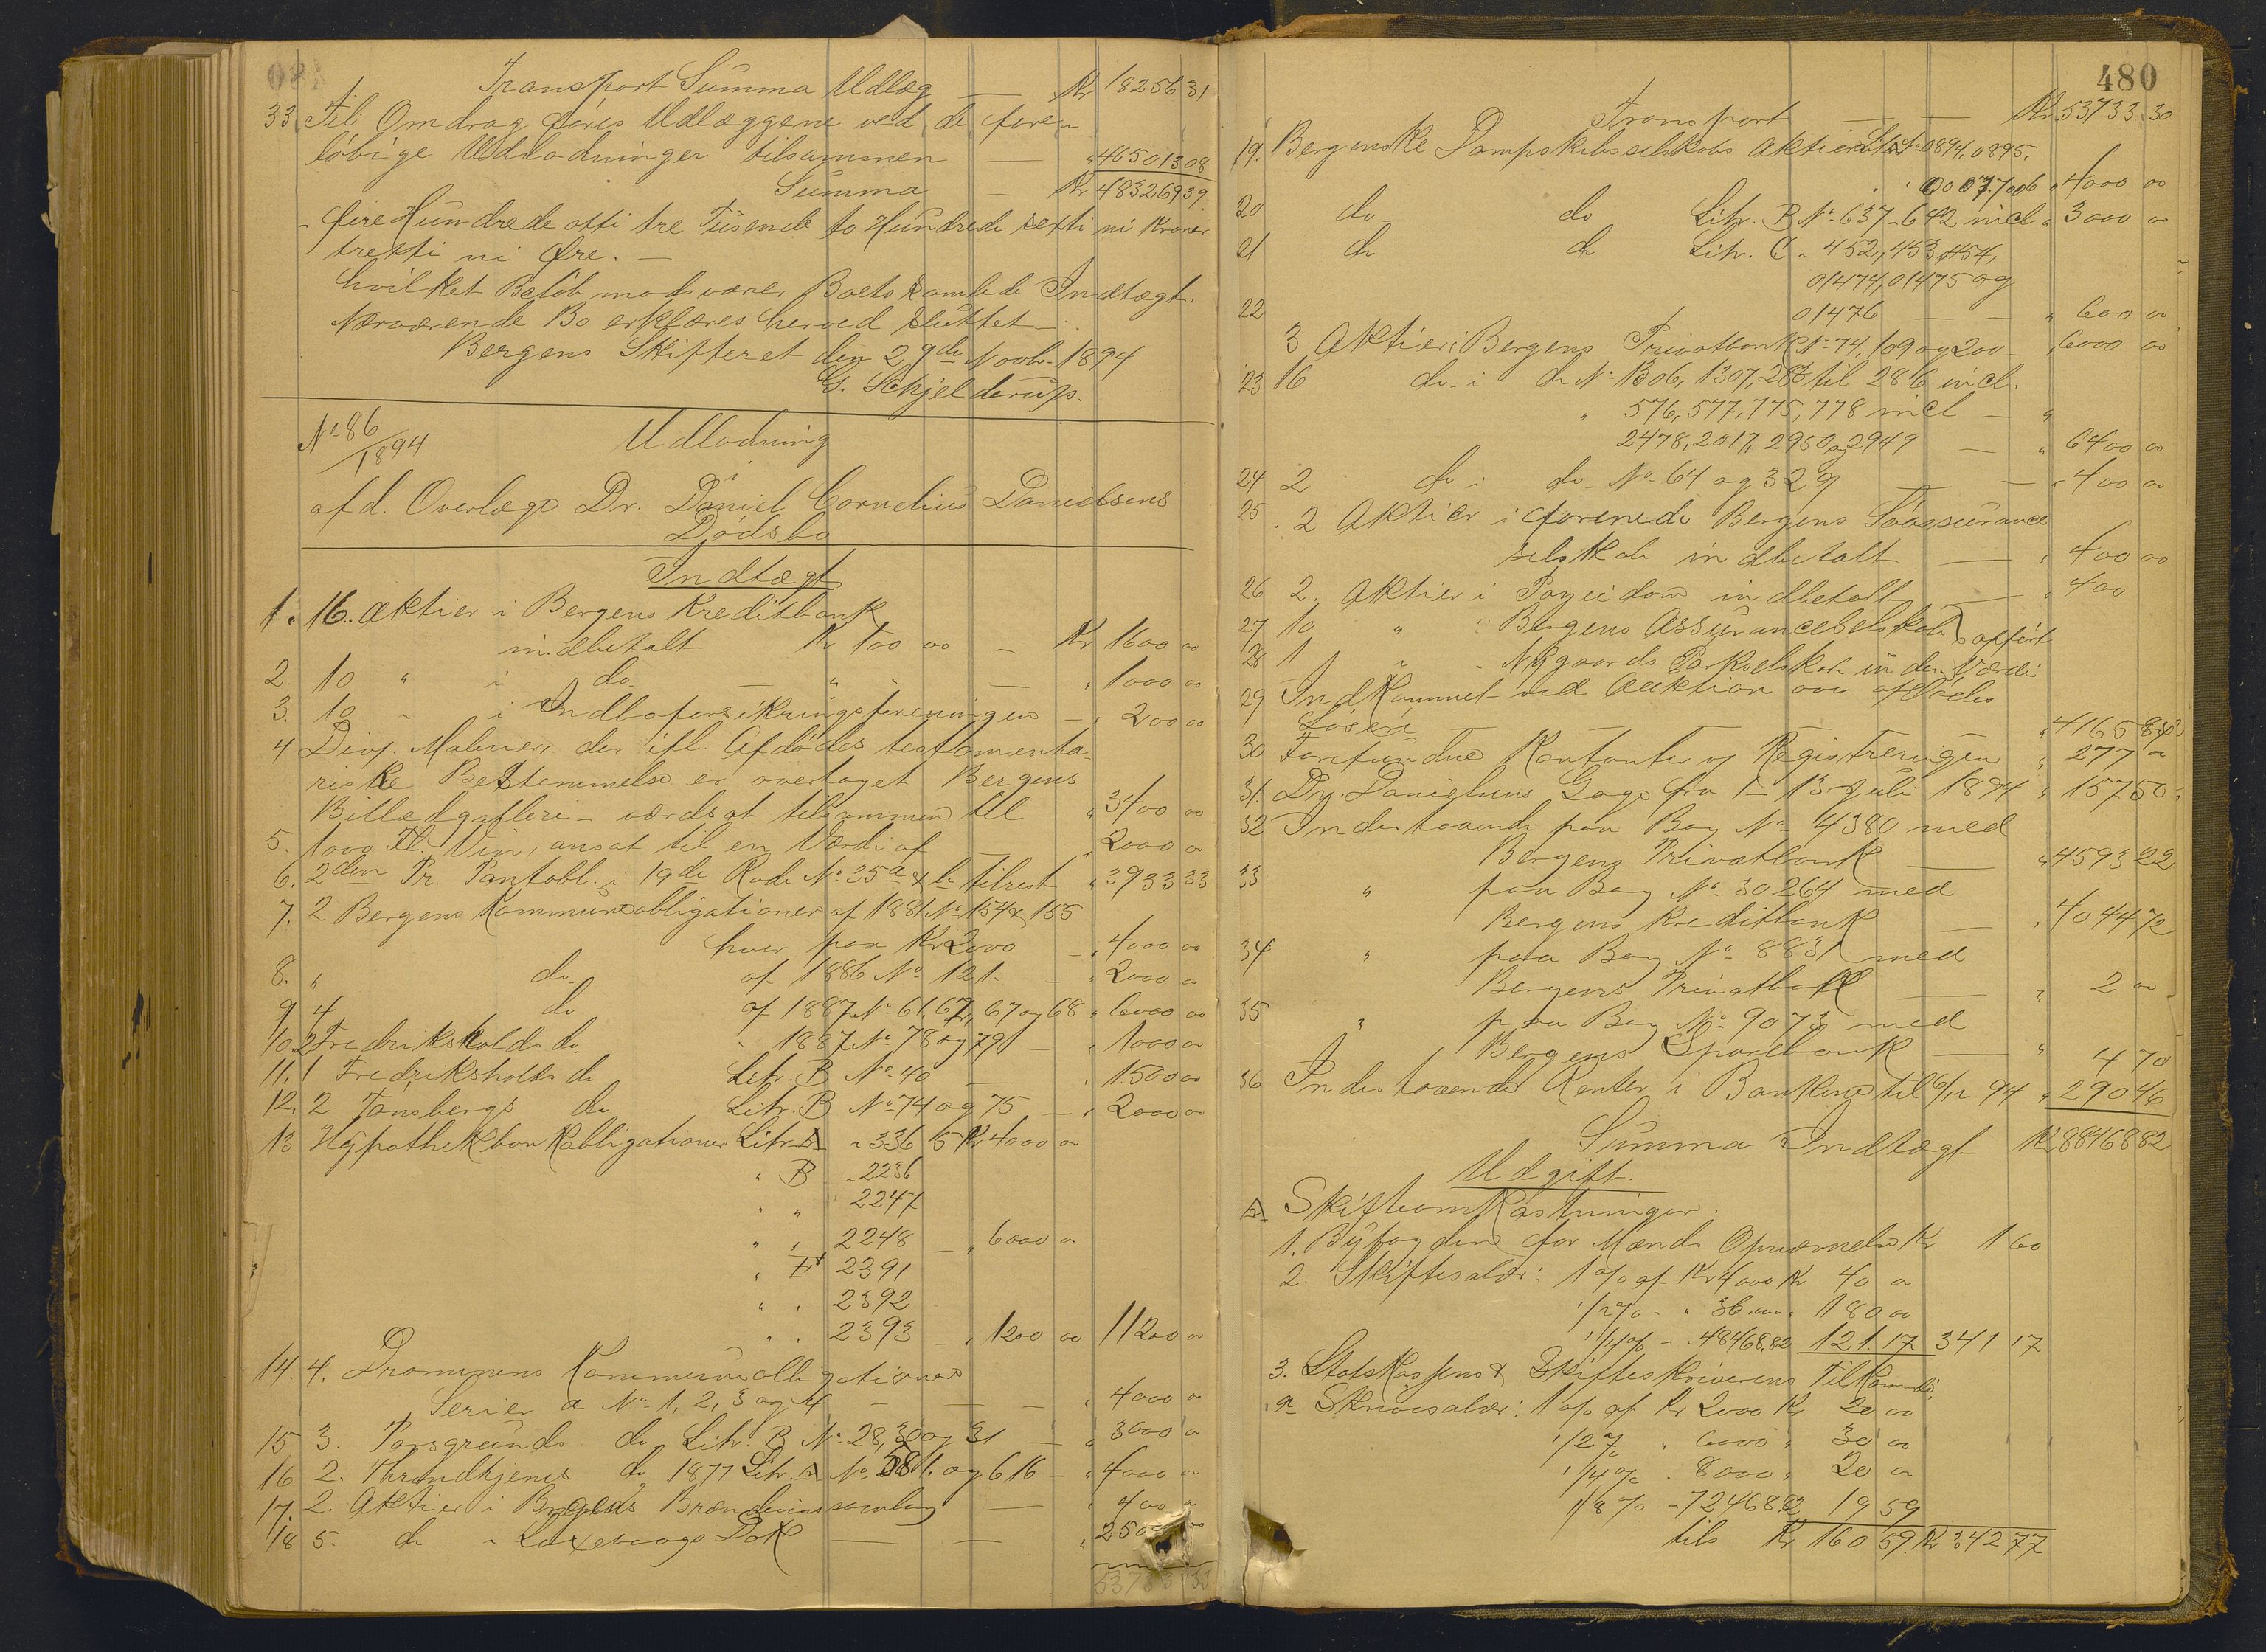 Transport Summa Udlæg — Kr 18256 31
33. Til Omdrag føres Udlæggene ved de fore-
løbige Udlodninger tilsammen — " 465013 08
Summa — Kr 483269 39
- fire Hundrede otti tre Tusende to Hundrede sexti ni Kroner
tretti ni Øre. —
hvilket Beløb modsvarer Boets samlede Indtægt.
Nærværende Bo erklæres herved sluttet —
Bergens Skifteret den 29de Novbr. 1894
G. Schjelderup.
No 86/1894
Udlodning
i
afd. Overlæge Dr. Daniel Cornelius Danielsens
Dødsbo
Indtægt
1. 16. Aktier i Bergens Kreditbank
indbetalt Kr 100 00 — Kr 1600 00
2. 10 " i do. — " — " 1000 00
3. 10 " i Indboforsikringsforeningen — " 200 00
4 Div. Malerier, der ifl. Afdødes testamenta-
riske Bestemmelse er overtaget Bergens
Billedgalleri - værdsat tilsammen til " 3400 00
5. 1000 Fl. Vin, ansat til en Værdi af — " 2000 00
6. 2den Pr. Pantobl. i 19de Rode No 35a & b tilrest " 3933 33
7. 2 Bergens Kommuneobligationer af 1881 No 154 & 155
hver paa Kr 2000 — " 4000 00
8. " do. af 1886 No 121. — " 2000 00
9 4 do af 1887 No 61, 62, 67 og 68 " 6000 00
10 2 Fredrikshalds do. " 1887 No 78 og 79 — " 1000 00
11. 1 Fredrikshalds do Litr. B No 40 — " 1500 00
12. 2 Tønsbergs do Litr. B No 74 og 75 — " 2000 00
13 Hypothekbankobligationer Litr. A " 3365 Kr 4000 00
" B " 2236
" " 2247
" " 2248 — " 6000 00
" F 2391
" " 2392
" " 2393 — " 1200 00 11200 00
14. 4. Drammens Kommuneobligationer
Serier a No 1, 2, 3 og 4 — — — " 4000 00
15 3. Porsgrunds do Litr. B No 28, 30 og 31 — " 3000 00
16 2. Throndhjems do 1877 Litr. A No 581. og 616 — " 4000 00
17. 2. Aktier i Bergens Brændevinssamlag — " 400 00
18 5. do " Laxevaags Dok — — " 2500 00
53733 33
480
Transport — — Kr 53733 30
19. Bergenske Dampskibsselskabs Aktier Litr. A No 0894, 0895,
" " 4000 00
20 do do Litr. B No 637-642 incl " 3000 00
21 do do Litr. C " 452, 453, 454,
01474, 01475 og
22 01476 — — " 600 00
3 Aktier i Bergens Privatbank No 74, 109 og 200 — " 6000 00
23 16 do. i do No 1306, 1307, 283 til 286 incl.
" 576, 577, 775, 778 incl — "
2478, 2017, 2950 og 2949 — " 6400 00
24 2 do i do. No 64 og 329 — — " 400 00
25. 2 Aktier i forenede Bergens Søassurance
selskab indbetalt — " 400 00
26 2. Aktier i Poseidon indbetalt — " 400
27 10 " i Bergens Assuranceselskab } opført
28 1 " " Nygaards Parkselskab } uden Værdi
29 Indkommet ved Auktion over afdødes
Løsøre — — — " 4165 80
30 Forefundne Kontanter og Registreringen " 277 00
31. Dr. Danielsens Gage fra 1 - 13 Juli 1894 " 157 50
32 Indestaaende paa Bog No 4380 med
Bergens Privatbank — " 4593 22
33 " paa Bog No. 30264 med
Bergens Kreditbank — " 4044 72
34 " paa Bog No 8831 med
Bergens Privatbank — " 2 00
35 " paa Bog No 9073 med
Bergens Sparebank — " 4 70
36 Indestaaende Renter i Bankerne til 6/12 94 " 290 46
Summa Indtægt Kr 88468 82
Udgift.
A Skifteomkostninger.
1. Byfogden for Mænds Opnævnelse Kr 1 60
2. Skiftesalær: 1 % af Kr 4000 Kr 40 00
" 1/2 % - " 36,000 " 180 00
" 1/4 % - " 48468,82 121.17 341 17
3. Statskassens & Skifteskriverens Tilkommende,
a Skriversalær: 1 % af Kr 2000 Kr 20 00
" 1/2 % " 6000 " 30 00
" 1/4 % " 8000 " 20 00
1/8 % - 72468.82 " 19 59
tils Kr 160 59. Kr 342 77